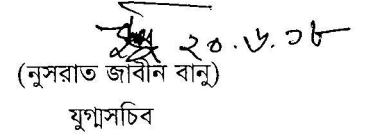 ২০.৬.১৮
(নুসরাত জাবীন বানু)
যুগ্মসচিব